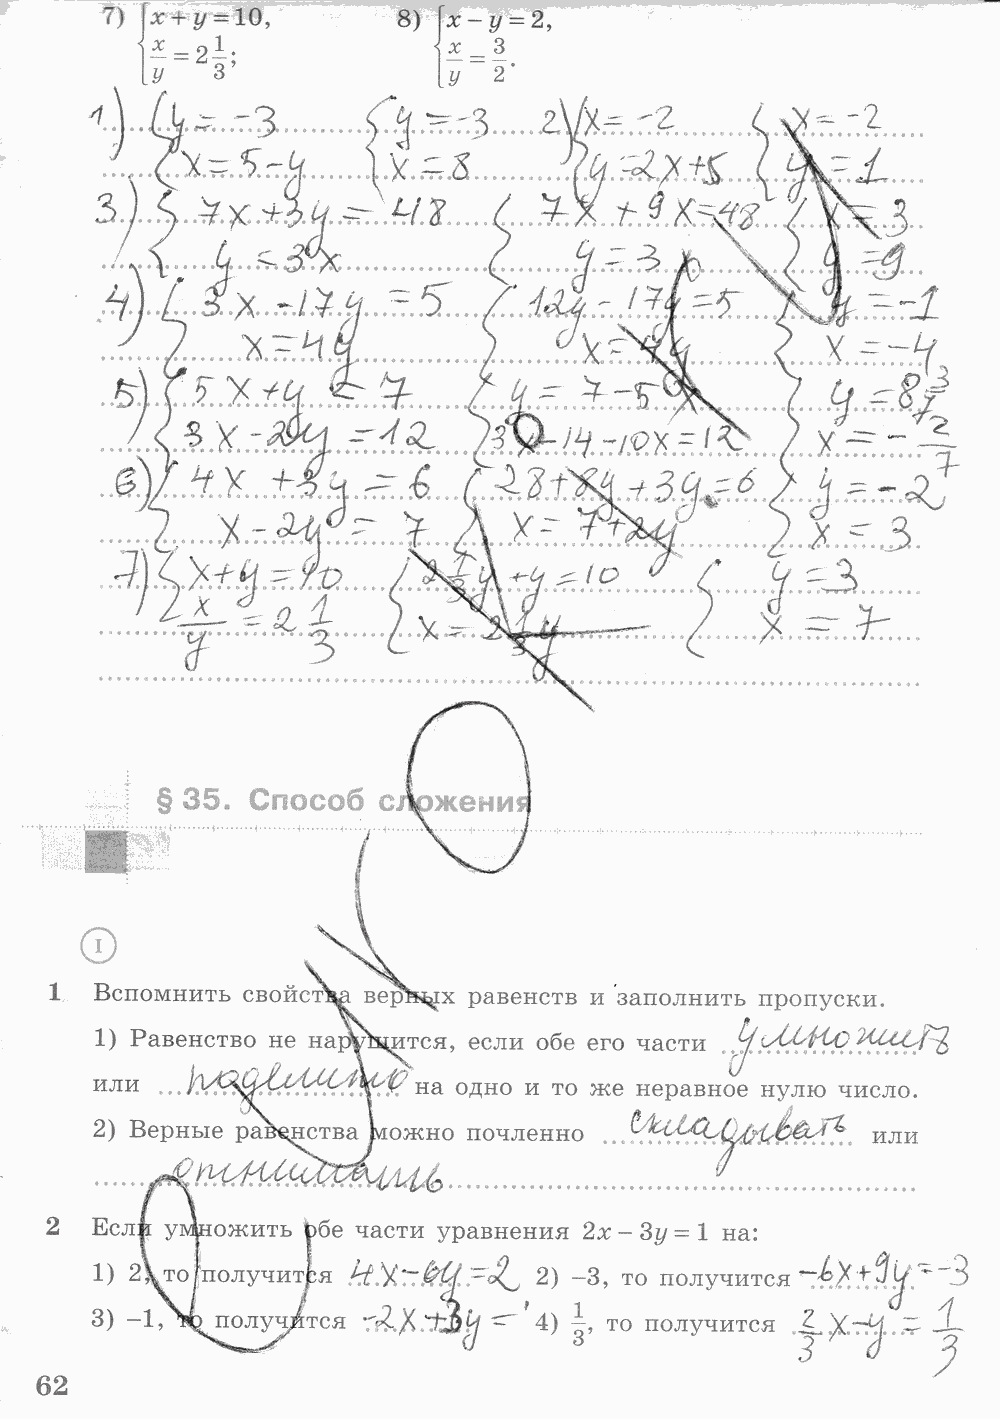 7) { x + y = 10,      8) { x − y = 2,
x/y = 2 1/3;      x/y = 3/2.
1) { y = -3      { y = -3      2) { x = -2      { x = -2
x = 5 - y      x = 8      y = 2x + 5      y = 1
3) { 7x + 3y = 48      { 7x + 9x = 48      { x = 3
y = 3x      y = 3x      y = 9
4) { 3x - 17y = 5      { 12y - 17y = 5      { y = -1
x = 4y      x = 4y      x = -4
5) { 5x + y = 7      { y = 7 - 5x      { y = 8 3/7
3x - 2y = 12      3x - 14 - 10x = 12      x = - 2/7
6) { 4x + 3y = 6      { 28 + 8y + 3y = 6      { y = -2
x - 2y = 7      x = 7 + 2y      x = 3
7) { x + y = 10      { 2 1/3 y + y = 10      { y = 3
x/y = 2 1/3      x = 2 1/3 y      x = 7
§ 35. Способ сложения
I
1 Вспомнить свойства верных равенств и заполнить пропуски.
1) Равенство не нарушится, если обе его части умножить
или поделить на одно и то же неравное нулю число.
2) Верные равенства можно почленно складывать или
отнимать
2 Если умножить обе части уравнения 2x − 3y = 1 на:
1) 2, то получится 4x - 6y = 2 2) −3, то получится -6x + 9y = -3
3) −1, то получится -2x + 3y = 4) 1/3, то получится 2/3 x - y = 1/3
62